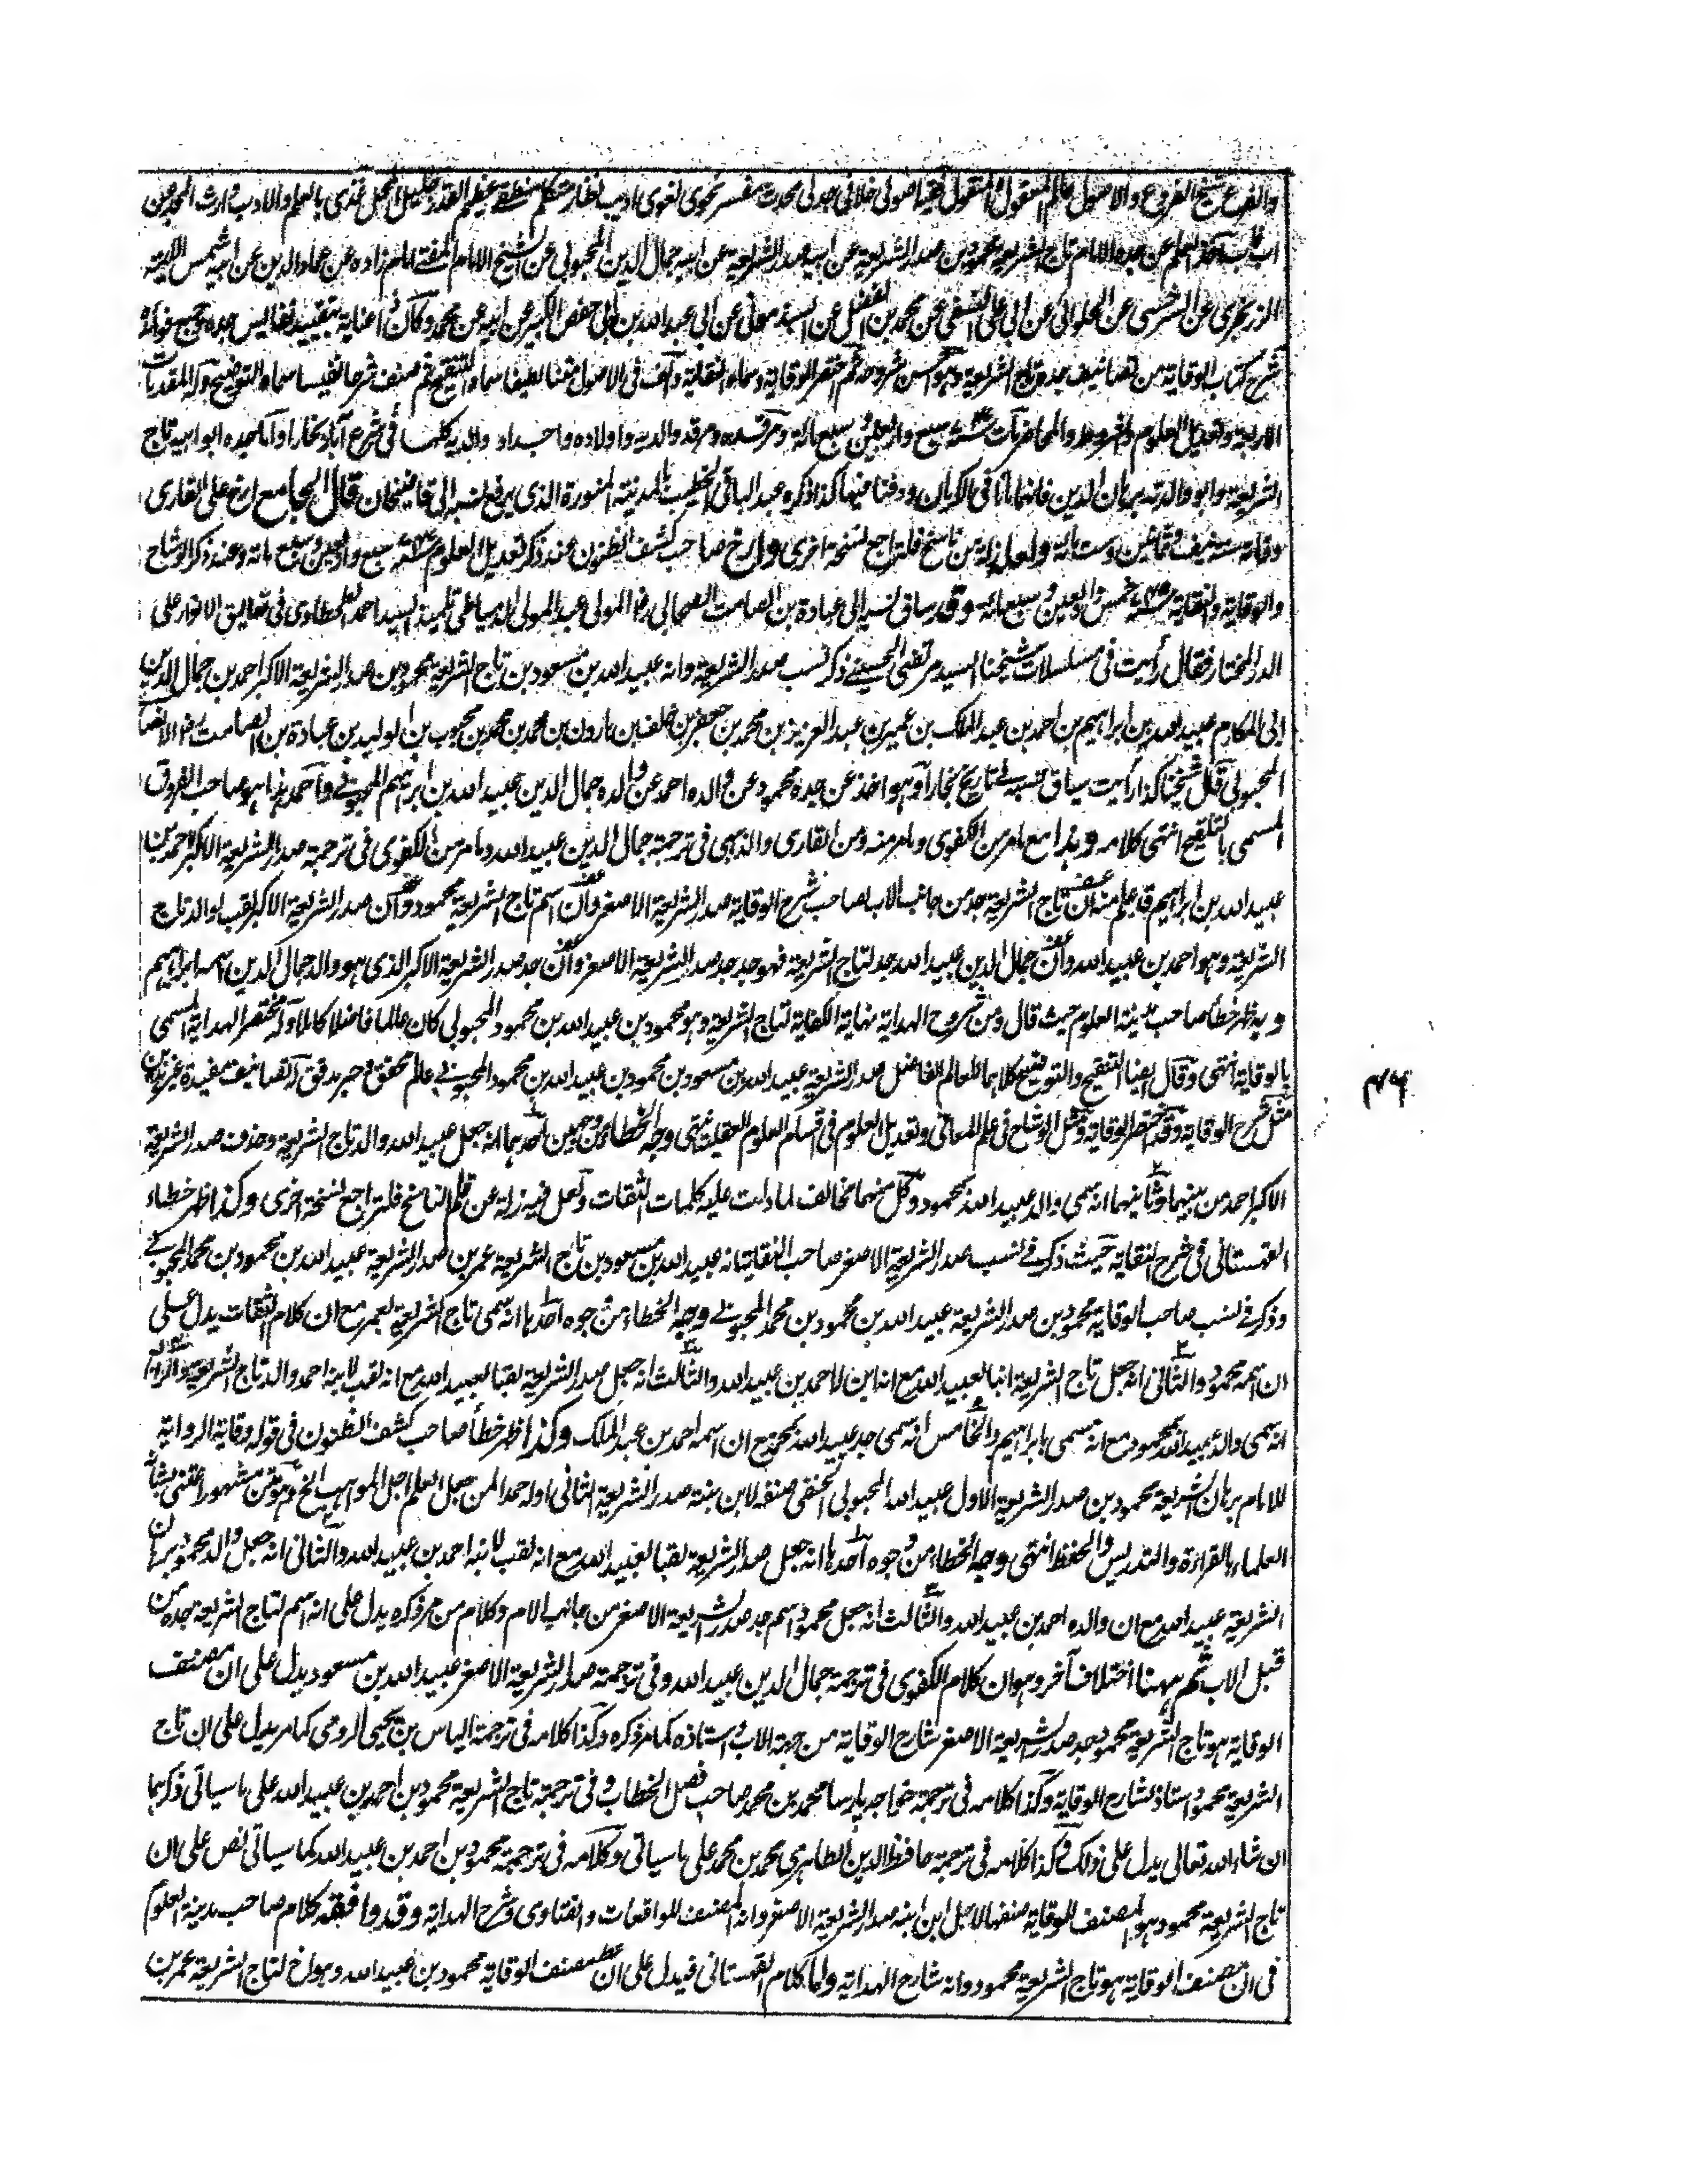 والفرع شيخ الفروع والاصول عالم المعقول والمنقول فقيه اصولى خلافى جدلى محدث مفسر نحوى لغوى اديب نظار متكلم منطقى عظيم القدر جليل المحل غذى بالعلم والادب وارث المجد عن
اب فاب اخذ العلم عن جده الامام تاج الشريعة محمود بن صدر الشريعة عن ابيه صدر الشريعة عن ابيه جمال الدين المحبوبى عن الشيخ الامام المفتى امام زاده عن عماد الدين عن ابيه شمس الائمة
الزرنجرى عن السرخسى عن الحلوائى عن ابى على النسفى عن محمد بن الفضل عن السبذمونى عن ابى عبد الله بن ابى حفص الكبير عن ابيه عن محمد وكان ذا عناية بتقييد نفائس جده وجمع فوائده
شرح كتاب الوقاية من تصانيف جده تاج الشريعة وهو احسن شروحه ثم اختصر الوقاية وسماه النقاية والف فى الاصول متنا لطيفا سماه التنقيح ثم صنف شرحا نفيسا سماه التوضيح وله المقدمات
الاربعة وتعديل العلوم والشروط والمحاضر مات سنة سبع واربعين وسبع مائة ومرقده ومرقد والديه واولاده واجداد والديه كلها فى شرع آباد بخارا واما جده ابو ابيه تاج
الشريعة وابو والدته برهان الدين فانهما ماتا فى الكرمان ودفنا فيها كذا ذكره عبد الباقى الخطيب بالمدينة المنورة الذى يرفع نسبه الى قاضيخان قال الجامع ارخ على القارى
وفاته سنة نيف وثمانين وست مائة ولعله زلة من ناسخ فلتراجع نسخة اخرى وارخ صاحب كشف الظنون عند ذكر تعديل العلوم سنة سبع واربعين وسبع مائة وعند ذكر الوشاح
والوقاية والنقاية سنة خمس واربعين وسبعمائة وقد ساق نسبه الى عبادة بن الصامت الصحابى رضـ المولى عبد المولى الدمياطى تلميذ السيد احمد الطحطاوى فى تعاليق الانوار على
الدر المختار فقال رأيت فى مسلسلات شيخنا السيد مرتضى الحسينى ذكر نسب صدر الشريعة وانه عبيد الله بن مسعود بن تاج الشريعة محمود بن صدر الشريعة الاكبر احمد بن جمال الدين
ابى المكارم عبيد الله بن ابراهيم بن احمد بن عبد الملك بن عمير بن عبد العزيز بن محمد بن جعفر بن خلف بن هارون بن محمد بن محمد بن محبوب بن الوليد بن عبادة بن الصامت رضـ الانصا
المحبوبى قال شيخنا كذا رأيت سياق نسبه فى تاريخ بخارا وهو اخذ عن جده محمود عن والده احمد عن والده جمال الدين عبيد الله بن ابراهيم المحبوبى واحمد هذا هو صاحب الفروق
المسمى بالتلقيح انتهى كلامه وهذا مع ما مر من الكفوى وما مر منه ومن القارى والذهبى فى ترجمة جمال الدين عبيد الله وما مر من الكفوى فى ترجمة صدر الشريعة الاكبر احمد بن
عبيد الله بن ابراهيم قد علم منه ان تاج الشريعة جد من جانب الاب لصاحب شرح الوقاية صدر الشريعة الاصغر وان اسم تاج الشريعة محمود وان صدر الشريعة الاكبر لقب لوالد تاج
الشريعة وهو احمد بن عبيد الله وان جمال الدين عبيد الله جد لتاج الشريعة فهو جد جد صدر الشريعة الاصغر وان جد صدر الشريعة الاكبر الذى هو والد جمال الدين اسمه ابراهيم
وبه ظهر خطأ صاحب مدينة العلوم حيث قال ومن شروح الهداية نهاية الكفاية لتاج الشريعة وهو محمود بن عبيد الله بن محمود المحبوبى كان عالما فاضلا كاملا وله مختصر الهداية المسمى
بالوقاية انتهى وقال ايضا التنقيح والتوضيح كلاهما للعالم الفاضل صدر الشريعة عبيد الله بن مسعود بن محمود بن عبيد الله بن محمود المحبوبى عالم محقق وحبر مدقق له تصانيف مفيدة غير هذين
مثل شرح الوقاية وقد اختصر الوقاية ومثل الوشاح فى علم المعانى وتعديل العلوم فى اقسام العلوم العقلية انتهى وجه الخطاء من وجهين احدهما انه جعل عبيد الله والد تاج الشريعة وحذف صدر الشريعة
الاكبر احمد من بينهما وثانيهما انه سمى والد عبيد الله بمحمود وكل منهما مخالف لما دلت عليه كلمات الثقات ولعل فيه زلة عن قلم الناسخ فلتراجع نسخة اخرى وكذا ظهر خطاء
القهستانى فى شرح النقاية حيث ذكر فى نسب صدر الشريعة الاصغر صاحب النقاية انه عبيد الله بن مسعود بن تاج الشريعة عمر بن صدر الشريعة عبيد الله بن محمود بن محمد المحبوبى
وذكر فى نسب صاحب الوقاية محمود بن صدر الشريعة عبيد الله بن محمود بن محمد المحبوبى وجه الخطاء من وجوه احدها انه سمى تاج الشريعة بعمر مع ان كلام الثقات يدل على
ان اسمه محمود والثانى انه جعل تاج الشريعة ابنا لعبيد الله مع انه ابن لاحمد بن عبيد الله والثالث انه جعل صدر الشريعة لقبا لعبيد الله مع انه لقب لابنه احمد والد تاج الشريعة والرابع
انه سمى والد عبيد الله بمحمود مع انه مسمى بابراهيم والخامس انه سمى جد عبيد الله بمحمد مع ان اسمه احمد بن عبد الملك وكذا ظهر خطأ صاحب كشف الظنون فى قوله وقاية الرواية
للامام برهان الشريعة محمود بن صدر الشريعة الاول عبيد الله المحبوبى الحنفى صنفه لابن بنته صدر الشريعة الثانى اوله حمدا لمن جعل العلم اجل المواهب الخ وهو متن مشهور اعتنى بشأنه
العلماء بالقراءة والتدريس والحفظ انتهى وجه الخطاء من وجوه احدها انه جعل صدر الشريعة لقبا لعبيد الله مع انه لقب لابنه احمد بن عبيد الله والثانى انه جعل والد محمود برهان
الشريعة عبيد الله مع ان والده احمد بن عبيد الله والثالث انه جعل محمود اسم جد صدر الشريعة الاصغر من جانب الام وكلام من مر ذكره يدل على انه اسم لتاج الشريعة جده من
قبل الاب ثم ههنا اختلاف آخر وهو ان كلام الكفوى فى ترجمة جمال الدين عبيد الله وفى ترجمة صدر الشريعة الاصغر عبيد الله بن مسعود يدل على ان مصنف
الوقاية هو تاج الشريعة محمود جد صدر الشريعة الاصغر شارح الوقاية من جهة الاب واستاذه كما مر ذكره وكذا كلامه فى ترجمة الياس بن يحيى الرومى كما مر يدل على ان تاج
الشريعة محمود استاذ لشارح الوقاية وكذا كلامه فى ترجمة خواجه پارسا محمد بن محمد صاحب فصل الخطاب وفى ترجمة تاج الشريعة محمود بن احمد بن عبيد الله على ما سياتى ذكرهما
ان شاء الله تعالى يدل على ذلك وكذا كلامه فى ترجمة حافظ الدين الطاهرى محمد بن محمد على ما سياتى وكلامه فى ترجمة محمود بن احمد بن عبيد الله كما سياتى نص على ان
تاج الشريعة محمود هو المصنف للوقاية صنفها لاجل ابن ابنه صدر الشريعة الاصغر وانه المصنف للواقعات والفتاوى وشرح الهداية وقد وافقه كلام صاحب مدينة العلوم
فى ان مصنف الوقاية هو تاج الشريعة محمود وانه شارح الهداية واما كلام القهستانى فيدل على ان مصنف الوقاية محمود بن عبيد الله وهو اخ لتاج الشريعة عمر بن